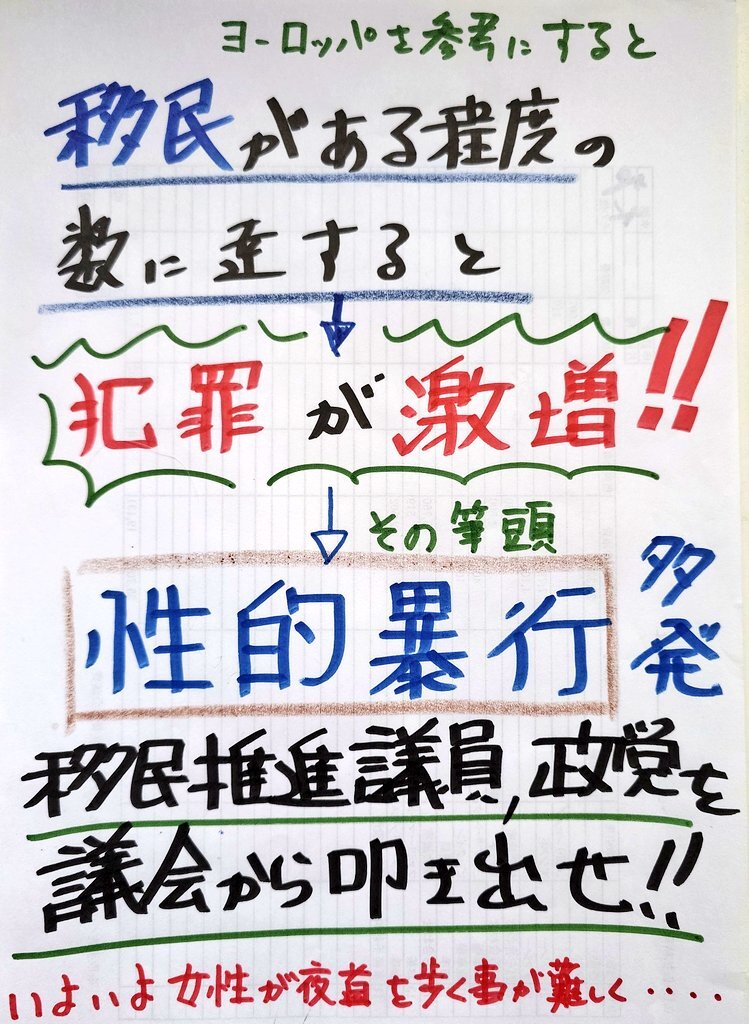 ヨーロッパを参考にすると
移民がある程度の
数に達すると
犯罪が激増!!
その筆頭
性的暴行
多発
移民推進議員,政党を
議会から叩き出せ!!
いよいよ女性が夜道を歩く事が難しく・・・・